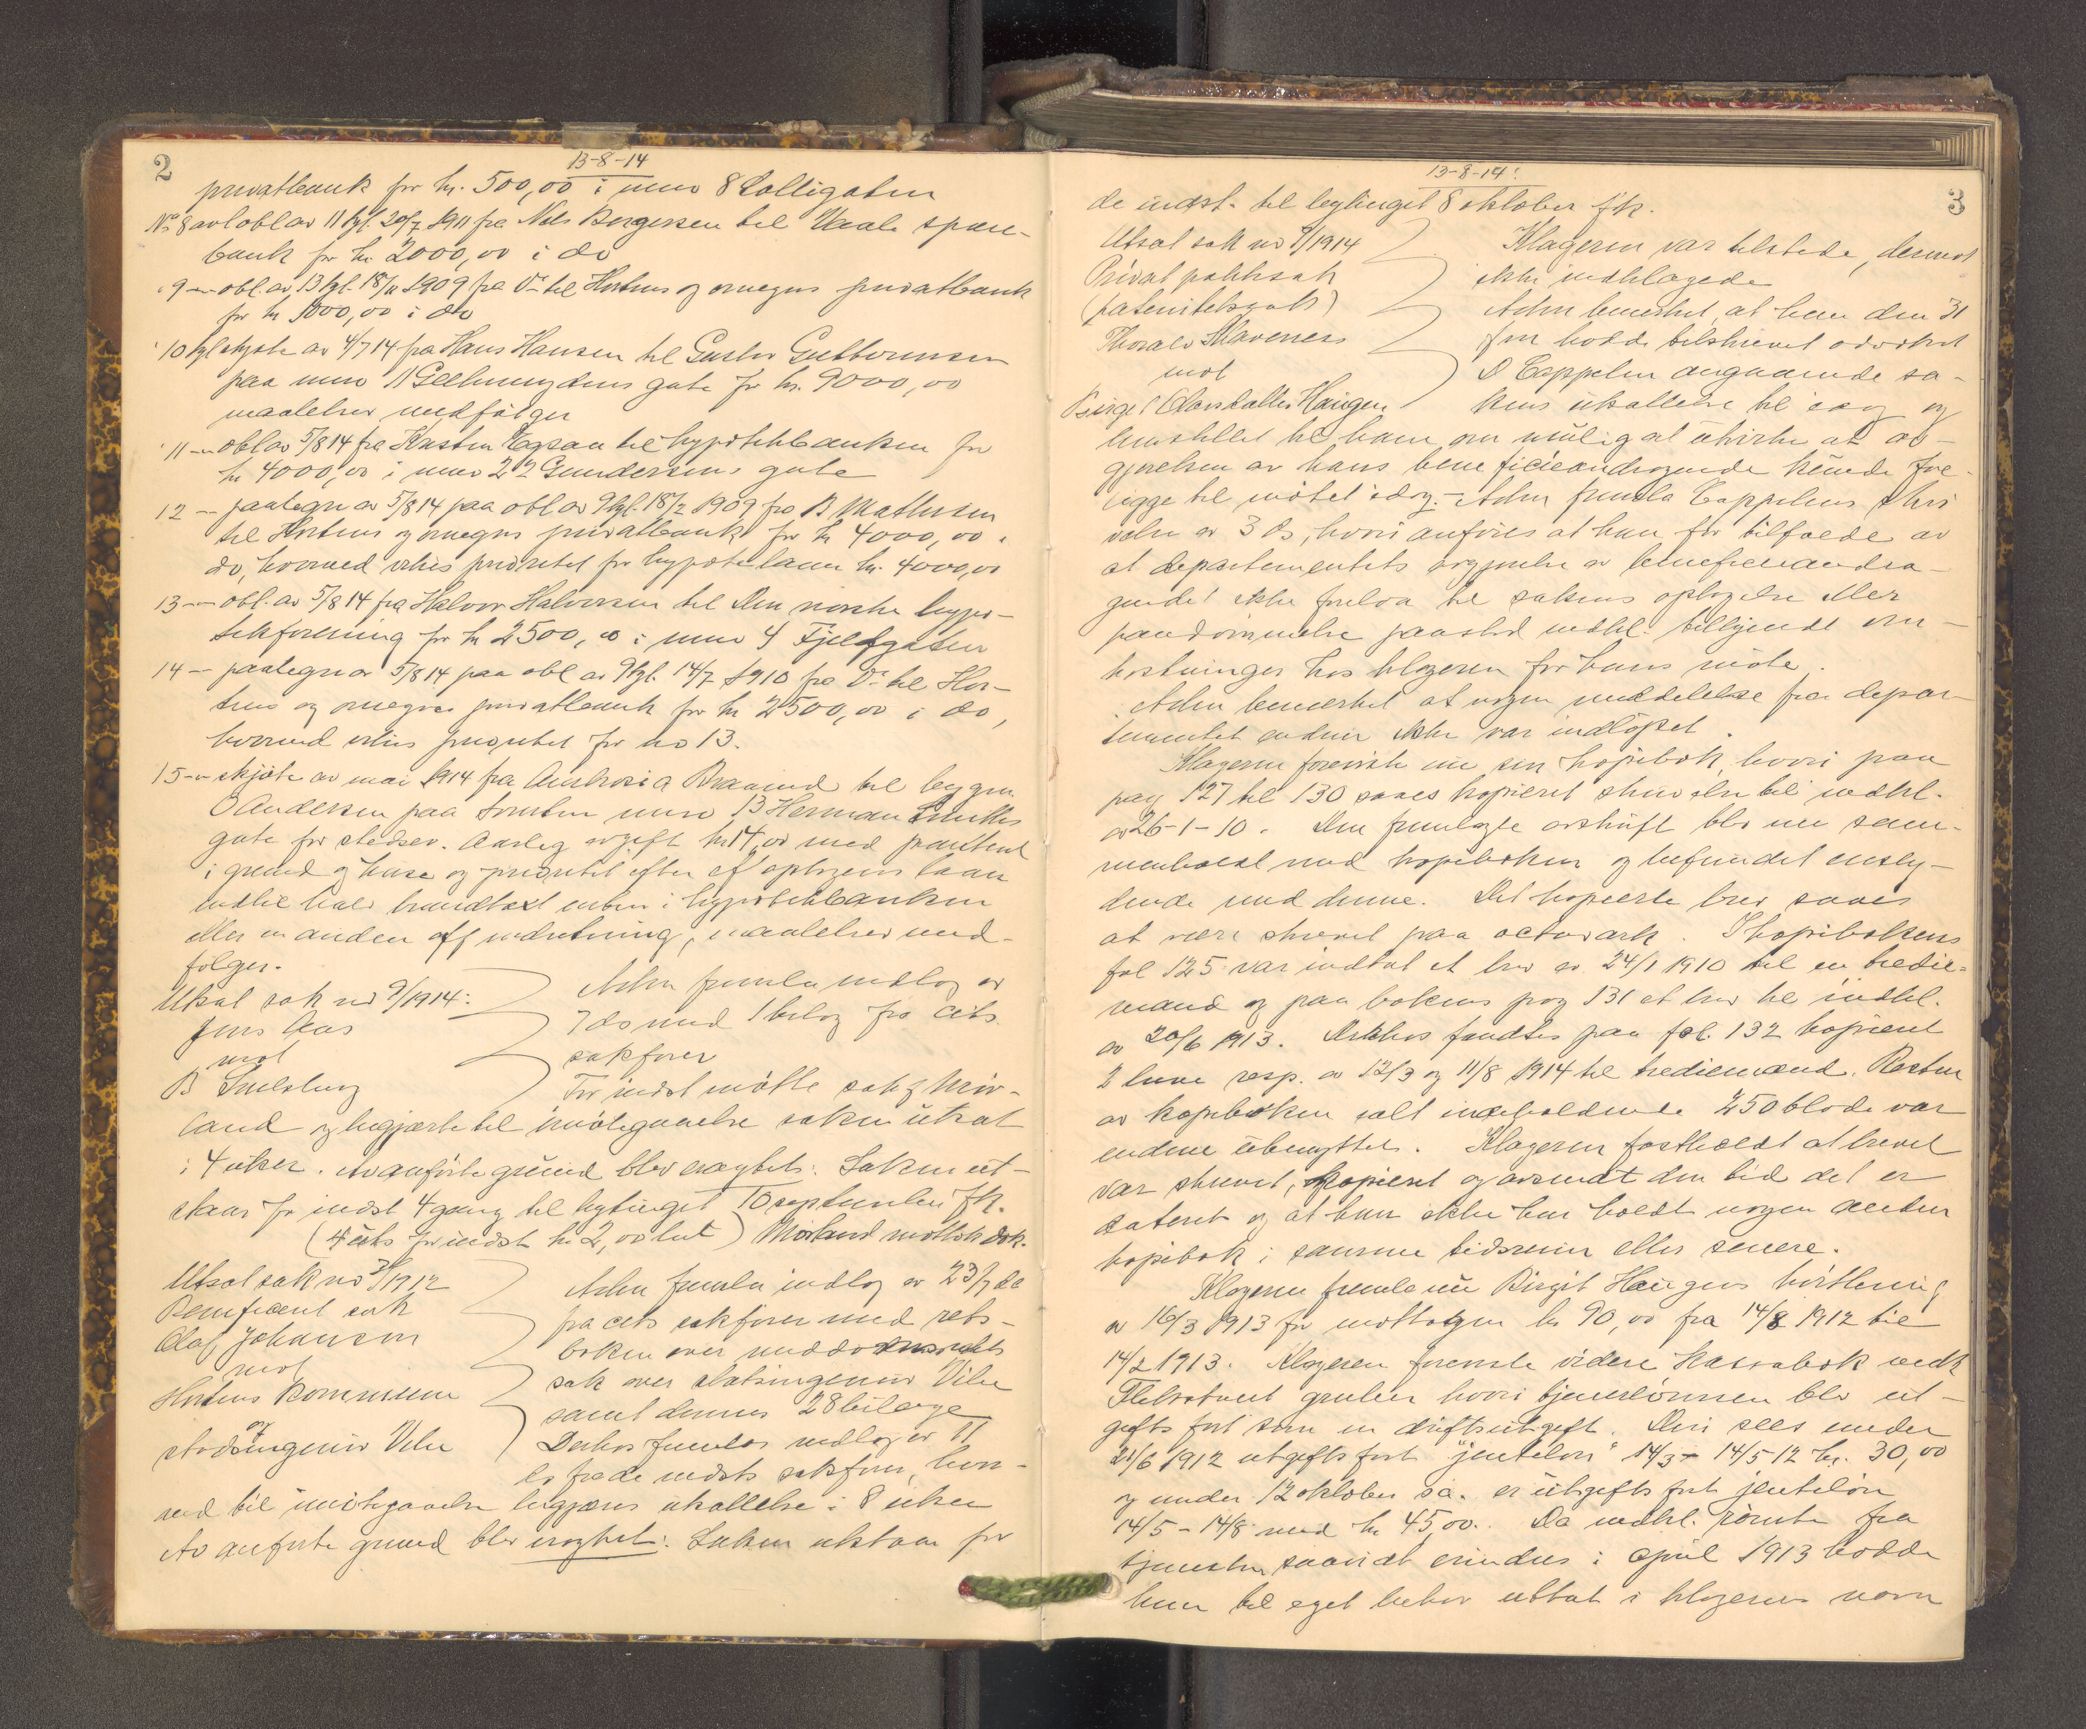 2
13-8-14
privatbank for kr. 500,00 i mno 8 Lolligaten
No 8 avl obl av 11 tgl. 20/7 1911 fra Nils Borgersen til Vaale spare-
bank for kr. 2000,00 i do
9 — obl. av 13 tgl. 18/11 1909 fra Do til Hortens og omegns privatbank
for kr 1000,00 i do
10 tgl skjøte av 4/7 14 fra Hans Hansen til Gustav Guttormsen
paa mno 11 Geelmuydens gate for kr. 9000,00
maalebrev medfølger
11 — obl av 5/8 14 fra Karsten til hypotekbanken for
kr 4000,00 i mno 22 Gundersens gate
12 — paategn av 5/8 14 paa obl av 9 tgl. 18/2 1909 fra B Mathisen
til Hortens og omegns privatbank for kr 4000,00 i
do, hvorved vikes prioritet for hypoteklaan kr. 4000,00
13 — obl. av 5/8 14 fra Halvor Halvorsen til Den norske hypo-
tekforening for kr 2500,00 i mno 4 Fjeldgaten
14 — paategn av 5/8 14 paa obl av 9 tgl. 14/7 1910 fra Do til Hor-
tens og omegns privatbank for kr 2500,00 i do,
hvorved vikes prioritet for no 13.
15 — skjøte av mai 1914 fra Ambrosia Braarud til byggm
O Andersen paa tomten mno 13 Herman gate for stedsev. Aarlig avgift kr 14,00 med panteret
i grund og huse og prioritet efter et optagens laan
indtil halv brandtakst enten i hypotekbanken
eller en anden off indretning, maalebrev med-
følger.
Utsat sak no 9/1914:
Jens Aas
mot
B
Adm fremla indlæg av
7 ds med 1 bilag fra cits
sakfører
For indst møtte sakf Mør-
land og begjærte til imøtegaaelse saken utsat
i 4 uker. Av anførte grund blev eragtet: Saken ut-
staar for indst 4 gang til bytinget 10 september fk.
(4 uts for indst kr 2,00 bet) Mørland mottok dok.
Utsat sak no 31/1912
Beneficent sak
Olaf Johansen
mot
Hortens kommune
og
stadsingeniør Vilu
Adm fremla indlæg av 23/7 da
fra cits sakfører med rets-
boken over meddomsrets
sak over statsingeniør Vilu
samt dennes 28 bilage
Derhos fremlas indlæg av 11
ds fra de indsts sakfører, hvor-
ved til imøtegaaelse begjæres utsættelse i 8 uker
Av anførte grund blev eragtet: Saken utstaar for
3
13-8-14.
de indst. til bytinget 8 oktober fk.
Utsat sak no 7/1914
Privat politisak
(paternitetssak)
Thoralv Klaveness
mot
Birgit Haugen
Klageren var tilstede, derimot
ikke indklagede
Adm bemerket, at han den 31
fm hadde tilskrevet advokat
D Cappelen angaaende sa-
kens utsættelse til idag og
henstillet til ham om mulig at utvirke at av-
gjørelsen av hans beneficieandragende kunde fore-
ligge til møtet idag. — Adm fremla Cappelens skri
velse av 3 ds, hvori anføres at han for tilfælde av
at departementets avgjørelse av beneficieandra-
gendet ikke forelaa til sakens optagelse eller
paadømmelse paastod indkl. tillignet om-
kostninger hos klageren for hans møte.
Adm bemerket at nogen meddelelse fra depar-
tementet endnu ikke var indløpet.
Klageren foreviste nu sin kopibok, hvori paa
pag 127 til 130 saaes kopieret skrivelse til indkl.
av 26-1-10. Den fremlagte avskrift blev nu sam-
menholdt med kopiboken og befundet ensly-
dende med denne. Det kopierte brev saaes
at være skrevet paa octavark. I kopibokens
fol 125 var indtat et brev av 24/1 1910 til en tredie-
mand og paa bokens pag 131 et brev til indkl.
av 20/6 1913. Derhos fandtes paa fol. 132 kopieret
2 breve resp. av 12/3 og 11/8 1914 til trediemænd. Resten
av kopiboken ialt indeholdende 250 blade var
endnu ubenyttet. Klageren fastholdt at brevet
var skrevet, kopieret og avsendt den tid det er
dateret og at han ikke har holdt nogen anden
kopibok i samme tidsrum eller senere.
Klageren fremla nu Birgit Haugens kvittering
av 16/3 1913 for mottagen kr 90,00 fra 14/8 1912 til
14/2 1913. Klageren foreviste videre kassabok vedk
gruber hvori tjenerlønnen blev ut-
giftsført som en driftsutgift. Den sees under
21/6 1912 utgiftsført "jenteløn" 14/3 - 14/5 12 kr. 30,00
og under 12 oktober s.a. er utgiftsført jenteløn
14/5 - 14/8 med kr 45,00. Da indkl. rømte fra
tjenesten saavidt erindres i april 1913 hadde
hun til eget behov uttat i klagerens navn